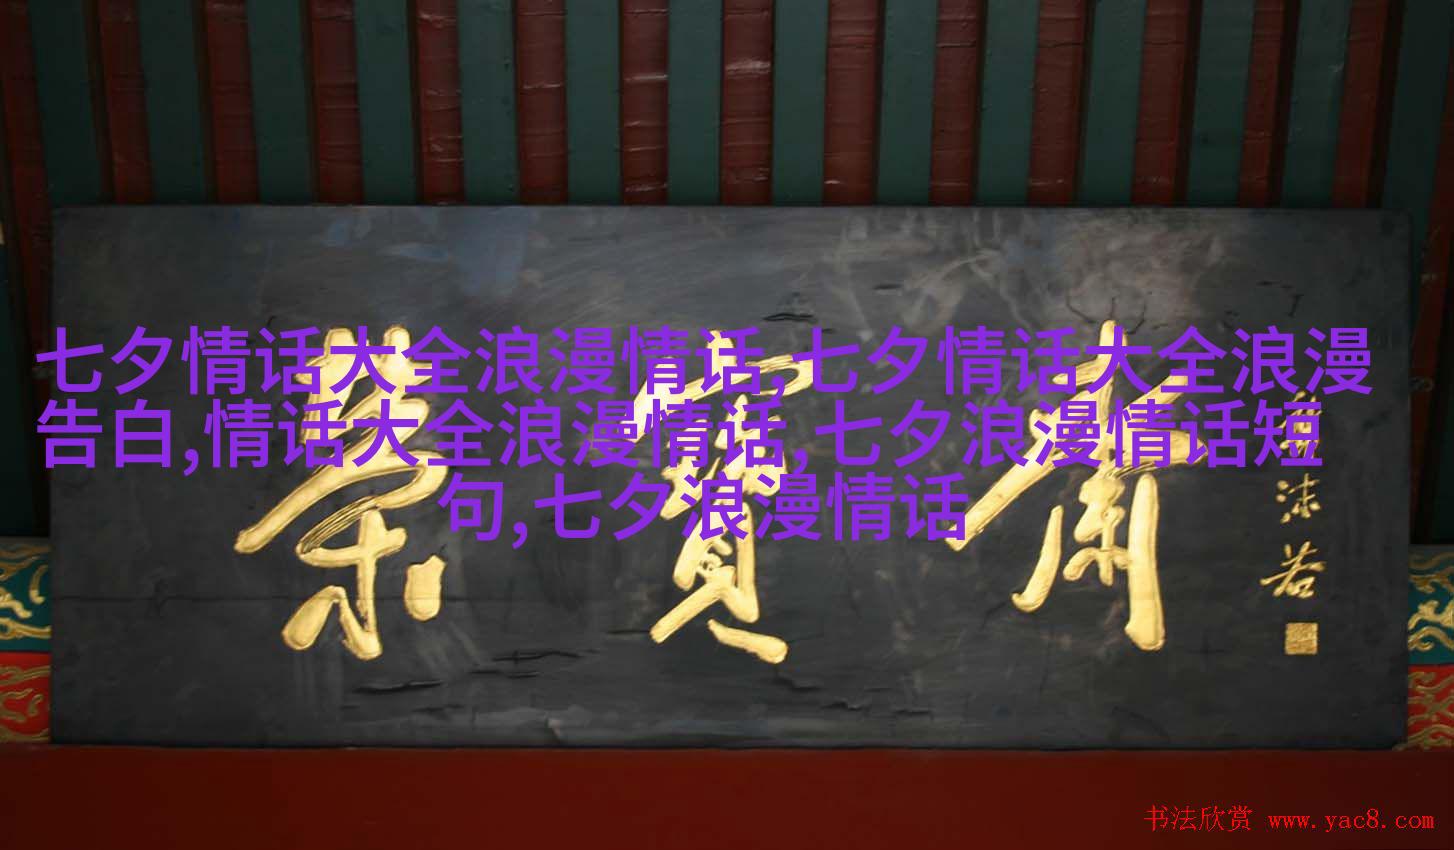 七夕情话大全浪漫情话,七夕情话大全浪漫
告白,情话大全浪漫情话,七夕浪漫情话短
句,七夕浪漫情话
荣寶斋
郭沫若
书法欣赏 www.yac8.com